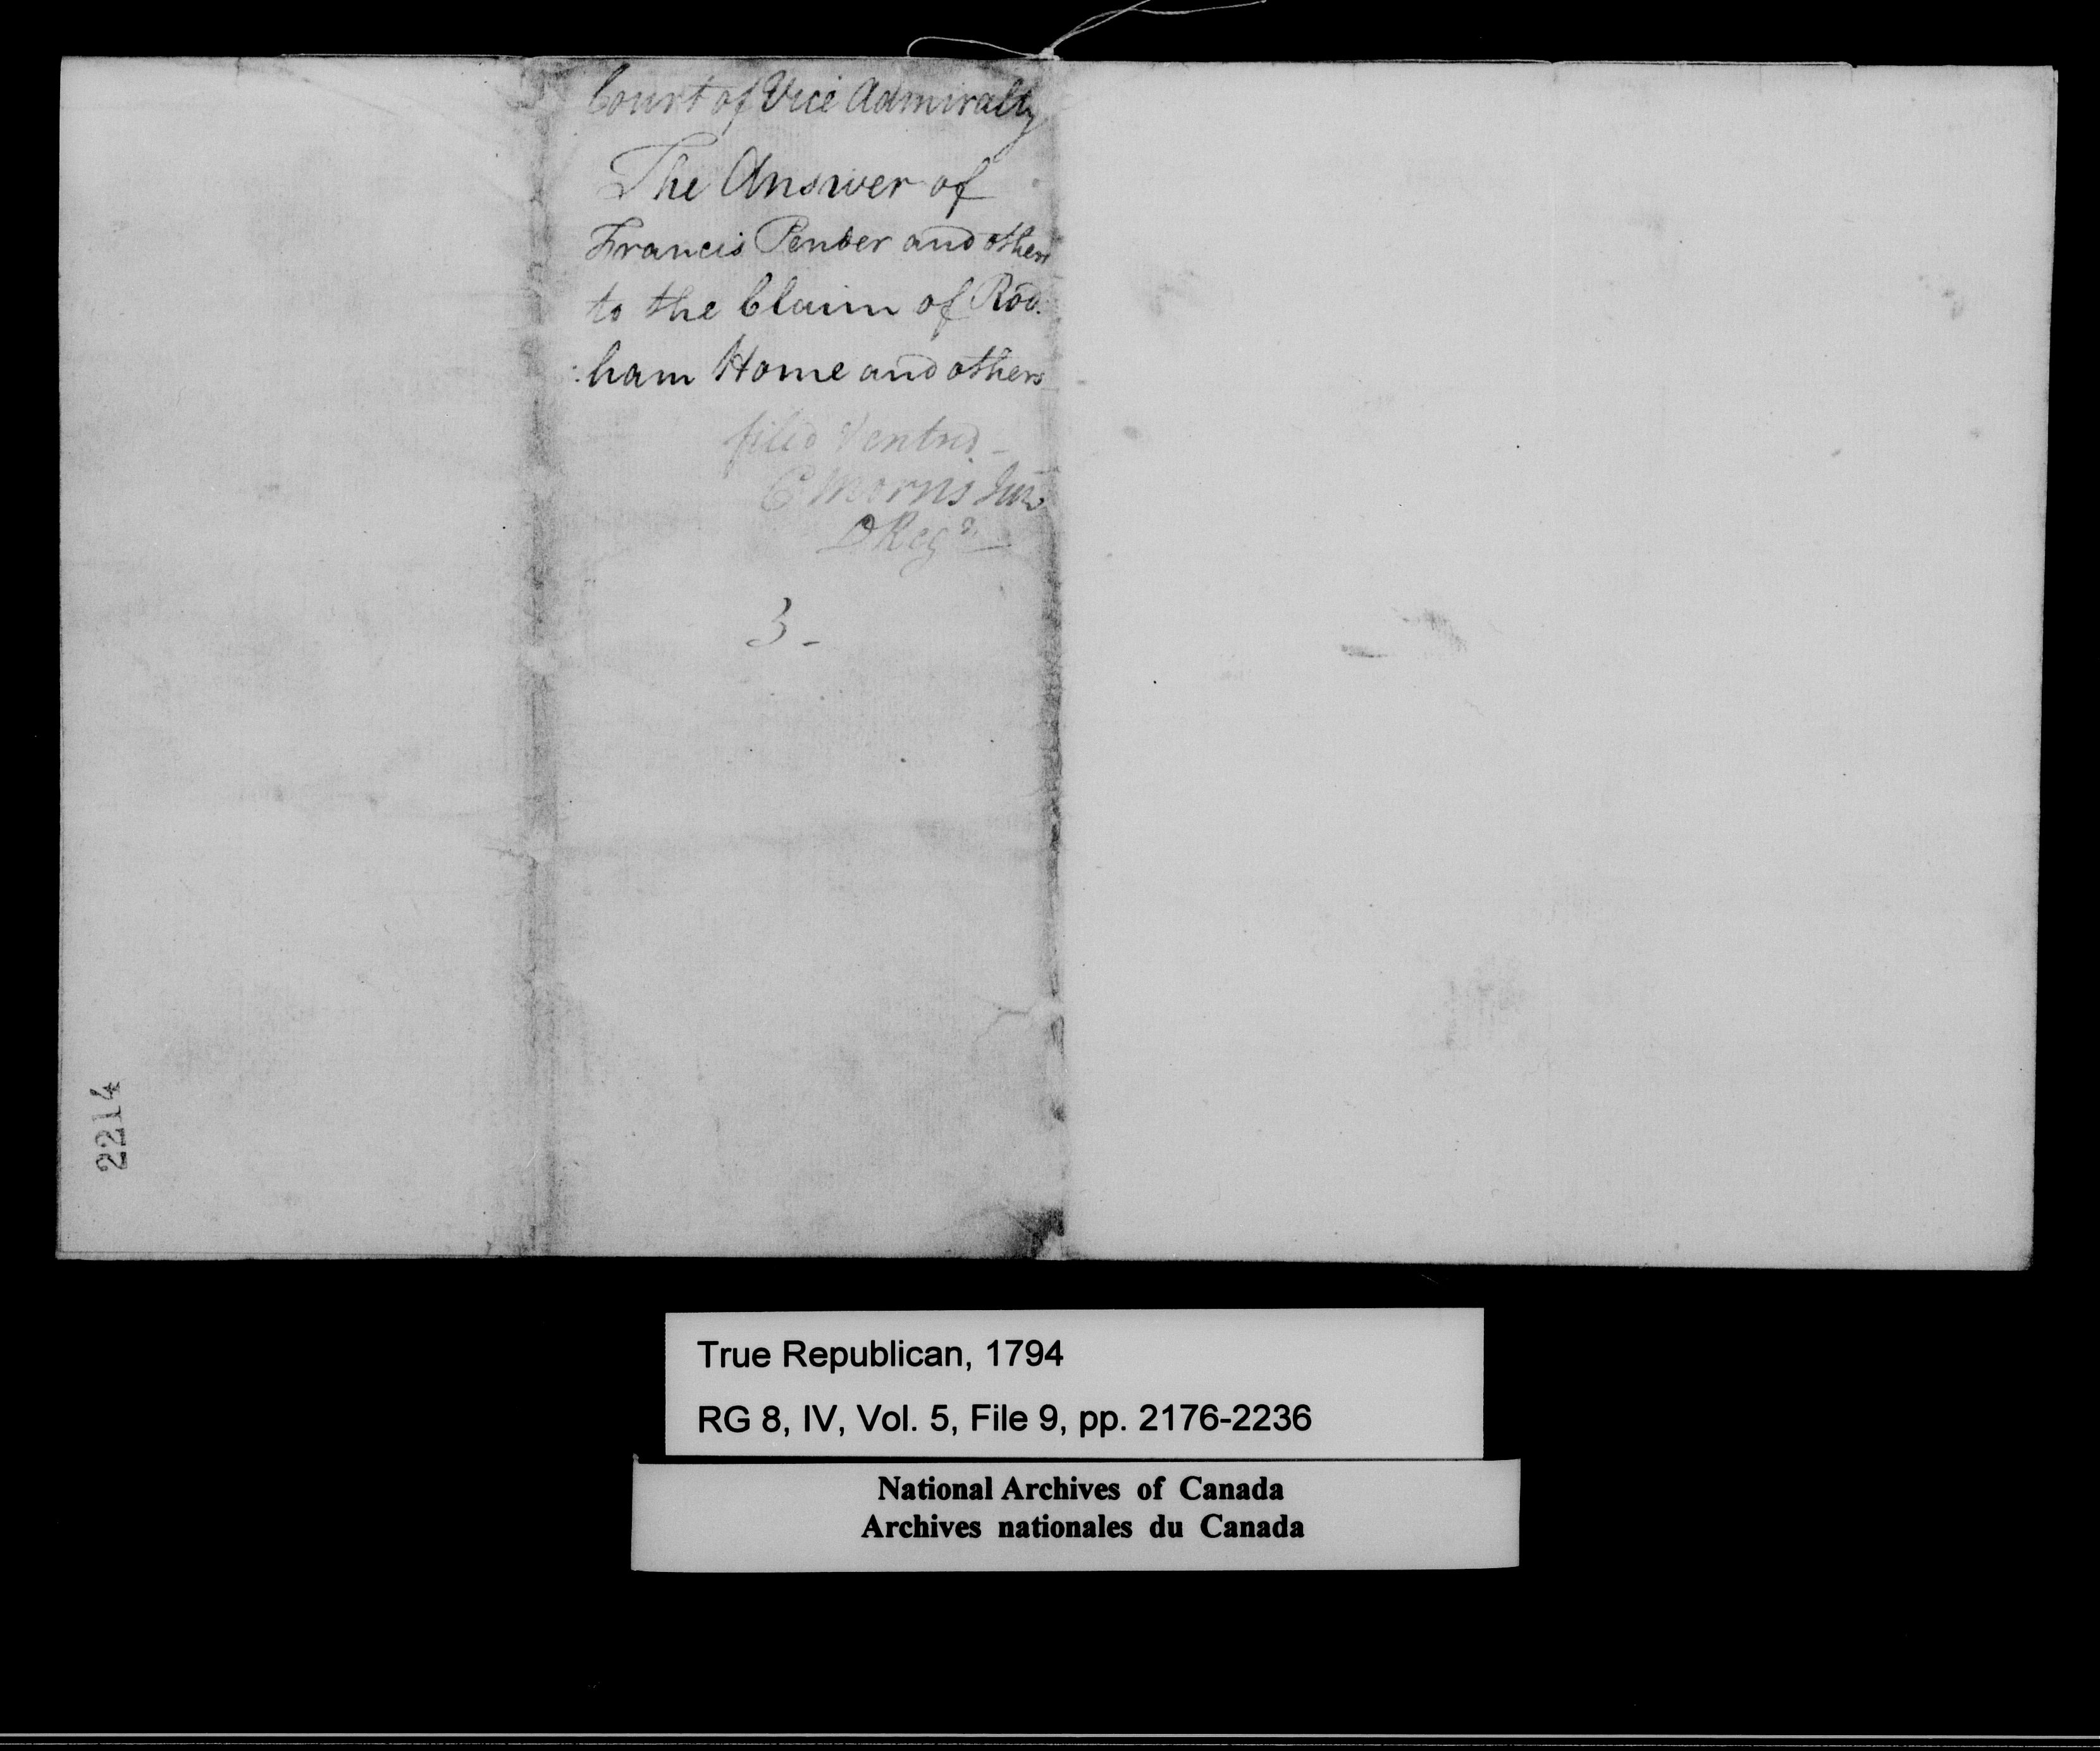 Court of Vice Admiralty
The Answer of
Francis Pender and others
to the Claim of Rod:
:ham Home and others
filed & entrd
C Morris Junr
D Regr
3 -
2214
True Republican, 1794
RG 8, IV, Vol. 5, File 9, pp. 2176-2236
National Archives of Canada
Archives nationales du Canada